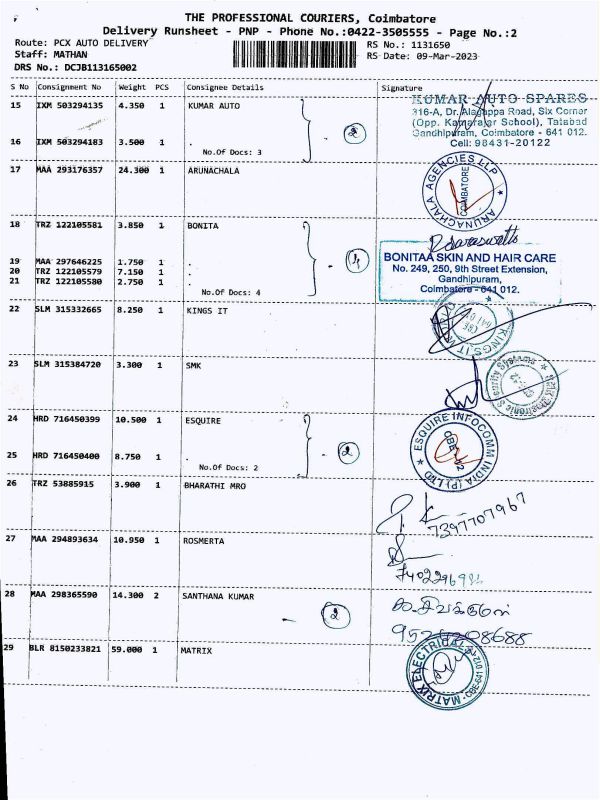 THE PROFESSIONAL COURIERS, Coimbatore
Delivery Runsheet - PNP - Phone No.:0422-3505555 - Page No.:2
Route: PCX AUTO DELIVERY
RS No.: 1131650
Staff: MATHAN
RS Date: 09-Mar-2023
DRS No.: DCJB113165002
S No Consignment No Weight PCS Consignee Details Signature
15 IXM 503294135 4.350 1 KUMAR AUTO
KUMAR AUTO SPARES
316-A, Dr. Alagappa Road, Six Corner
(Opp. Kamarajar School), Tatabad
Gandhipuram, Coimbatore - 641 012.
Cell: 98431-20122
2
16 IXM 503294183 3.500 1 .
No.Of Docs: 3
17 MAA 293176357 24.300 1 ARUNACHALA
ARUNACHALA AGENCIES LLP
COIMBATORE
18 TRZ 122105581 3.850 1 BONITA
19 MAA 297646225 1.750 1 .
20 TRZ 122105579 7.150 1 .
21 TRZ 122105580 2.750 1 .
No.Of Docs: 4
4
BONITAA SKIN AND HAIR CARE
No. 249, 250, 9th Street Extension,
Gandhipuram,
Coimbatore - 641 012.
22 SLM 315332665 8.250 1 KINGS IT
KINGS IT
CBE
23 SLM 315384720 3.300 1 SMK
24 HRD 716450399 10.500 1 ESQUIRE
ESQUIRE INFOCOMM INDIA (P) LTD
2
25 HRD 716450400 8.750 1 .
No.Of Docs: 2
26 TRZ 53885915 3.900 1 BHARATHI MRO
7397707967
27 MAA 294893634 10.950 1 ROSMERTA
28 MAA 298365590 14.300 2 SANTHANA KUMAR
2
29 BLR 8150233821 59.000 1 MATRIX
MATRIX ELECTRICALS
CBE-641 012